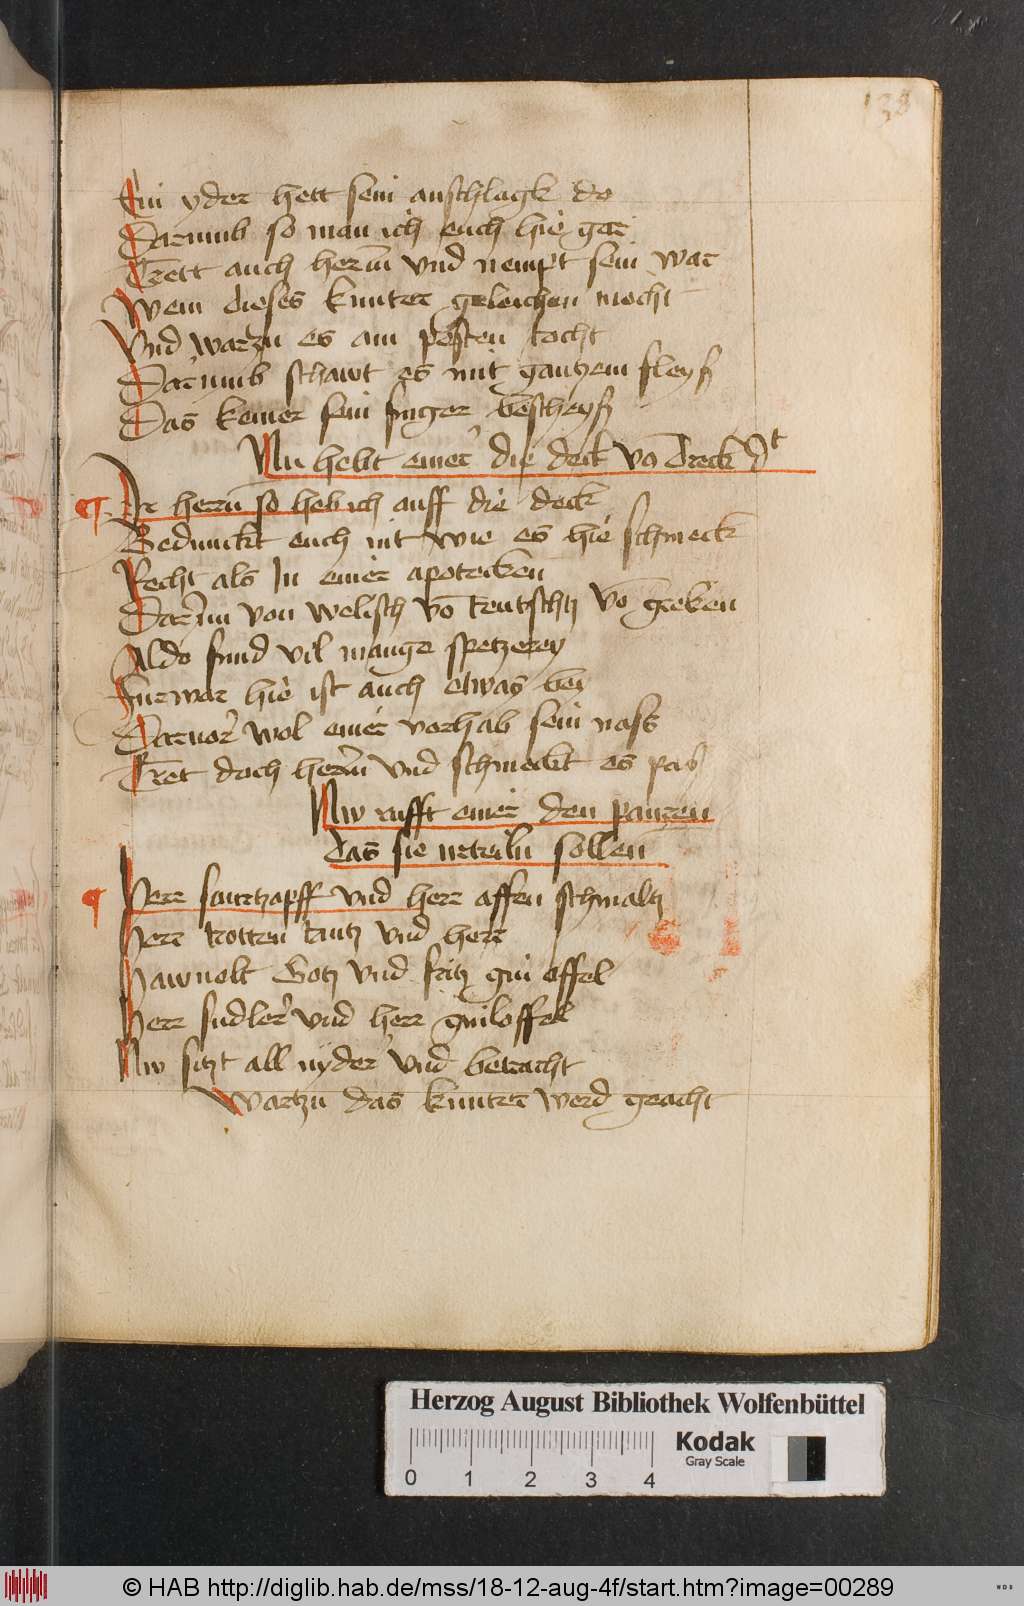 138
Ein yder hett sein anschlagk do
Darumb so man ich euch hie gar
Trett auch herein vnd nempt sein war
Wem dieses kunter geleichen mocht
Vnd warzu es am pesten tocht
Darumb schawt es mit gantzem fleyß
Das keiner sein finger bescheyß
Nu hebt einer die deck vō dreck
Ir herrn so heb ich auff die deck
Bedunckt euch nit wie es hie schmeck
Recht als In einer apotecken
Darinn von welisch vō teutschtz vō greken
Aldo sind vil manger spetzerey
Furwar hie ist auch etwas bey
Daruor wol einer vorhab sein nass
Tret doch herein vnd schmeckt es paß
Nw rufft einer den pauren
das sie vrteiln sollen
Herr saurtzapff vnd herr affen schmaltz
Herr trotten tantz vnd herr
Hawnolt Gotz vnd fritz gin offel
Herr sudler vnd herr ginloffel
Nw sitzt all nyder vnd betracht
Wartzu das kunter werd geacht
Herzog August Bibliothek Wolfenbüttel
0 1 2 3 4
Kodak
Gray Scale
© HAB http://diglib.hab.de/mss/18-12-aug-4f/start.htm?image=00289